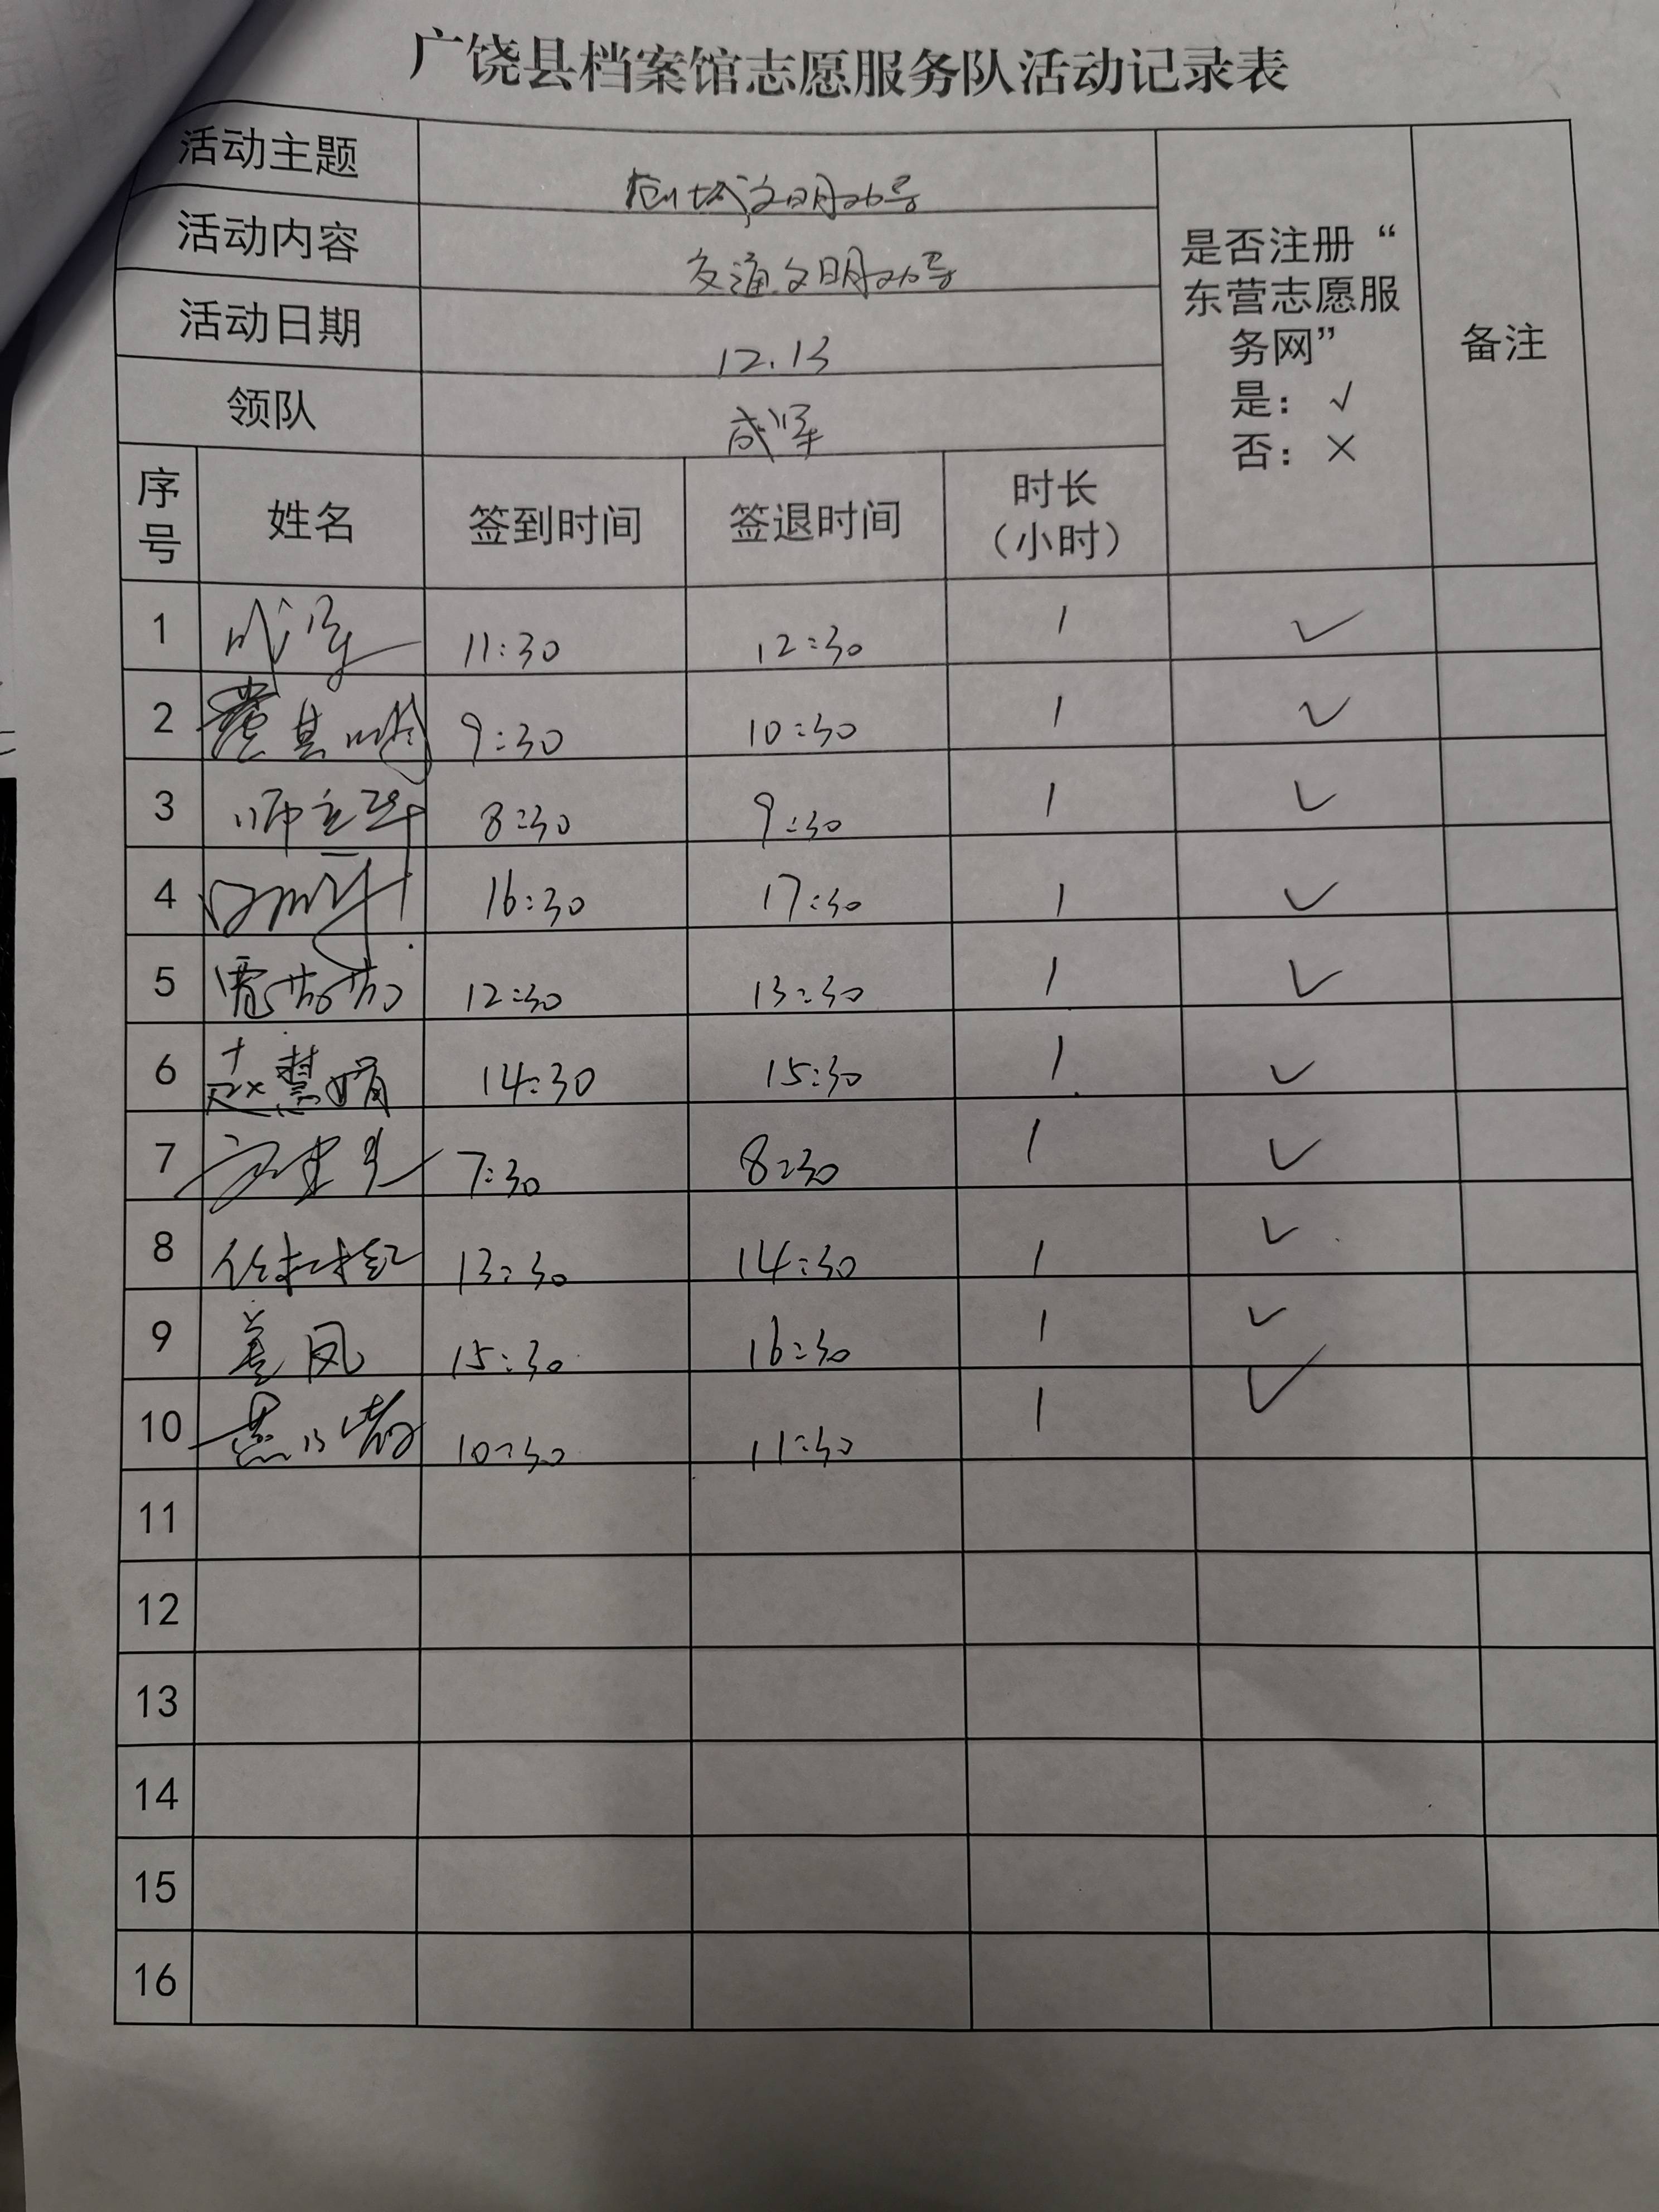 广饶县档案馆志愿服务队活动记录表
活动主题 创城文明劝导
活动内容 交通文明劝导
活动日期 12.13
领队 成军
是否注册“
东营志愿服
务网”
是：√
否：×
备注
序号 姓名 签到时间 签退时间 时长（小时）
1 成军 11:30 12:30 1 ✓
2 9:30 10:30 1 ✓
3 8:30 9:30 1 ✓
4 16:30 17:30 1 ✓
5 12:30 13:30 1 ✓
6 赵慧娟 14:30 15:30 1 ✓
7 7:30 8:30 1 ✓
8 13:30 14:30 1 ✓
9 15:30 16:30 1 ✓
10 10:30 11:30 1 ✓
11
12
13
14
15
16